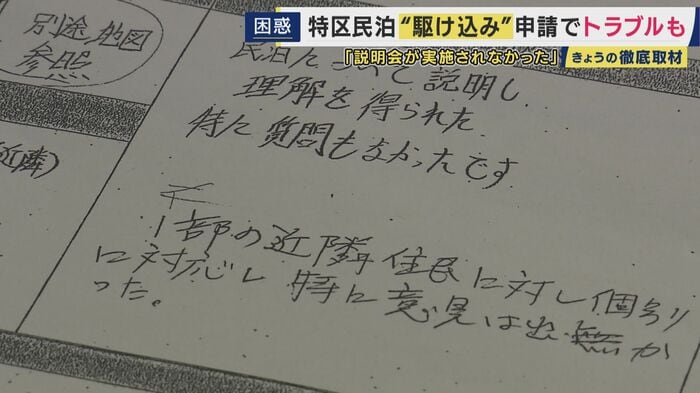 困惑 特区民泊“駆け込み”申請でトラブルも
「説明会が実施されなかった」 きょうの徹底取材
別途、地図
参照
近隣)
民泊について説明し
理解を得られた
特に質問もなかったです
1部の近隣住民に対し個別
に対応し 特に意見は出無か
った。